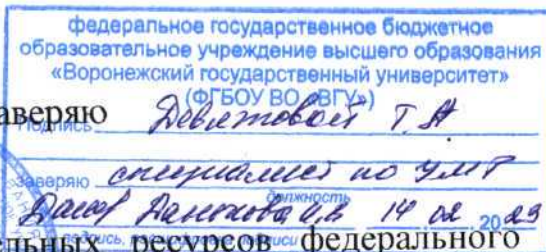 федеральное государственное бюджетное
образовательное учреждение высшего образования
«Воронежский государственный университет»
(ФГБОУ ВО «ВГУ»)
заверяю
Подпись Девятовой Т.А
заверяю специалист по УМР
должность
14 02 2023
подпись, расшифровка подписи
ельных ресурсов федерального